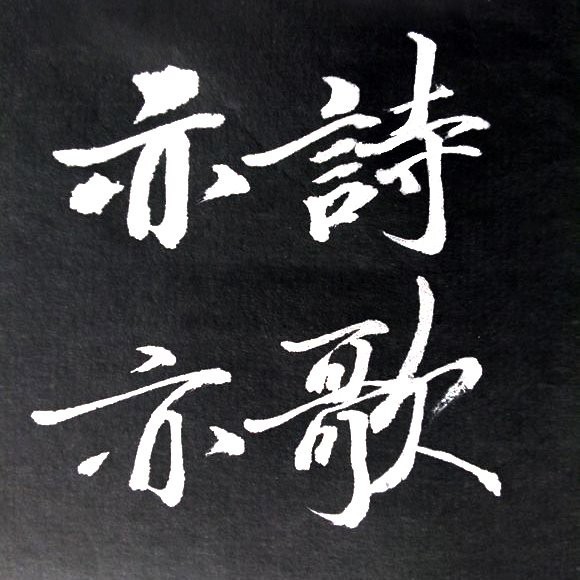 亦詩
亦歌